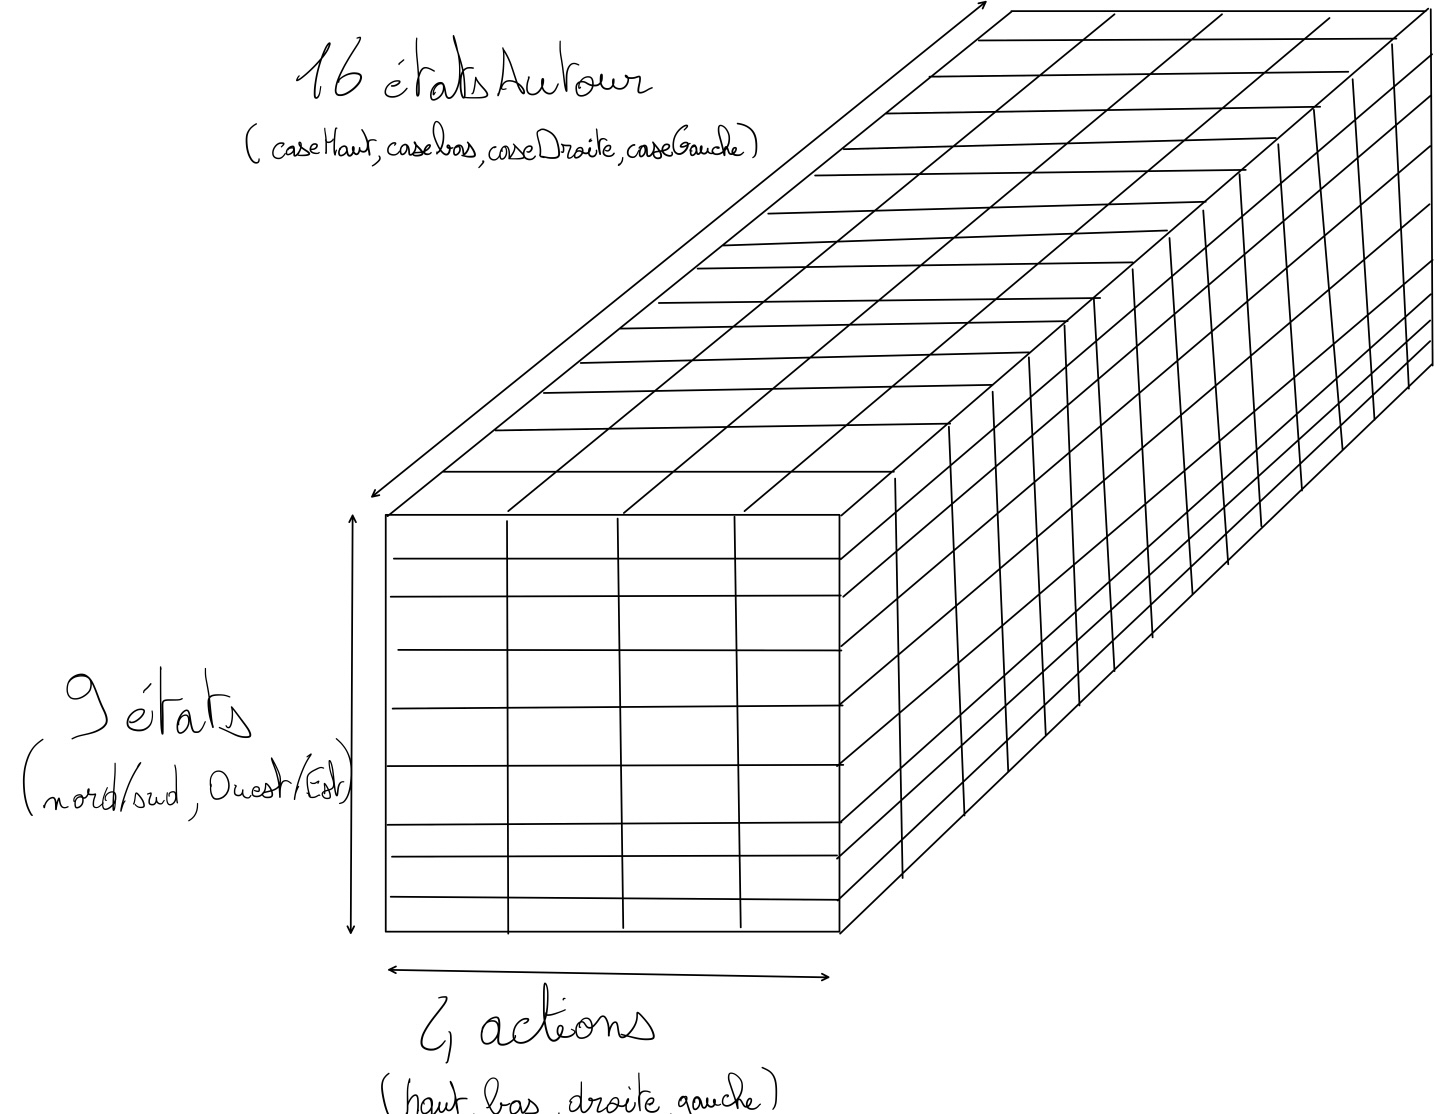 16 étatsAutour
(caseHaut, casebas, caseDroite, caseGauche)
9 états
(nord/sud, Ouest/Est)
4 actions
(haut, bas, droite, gauche)